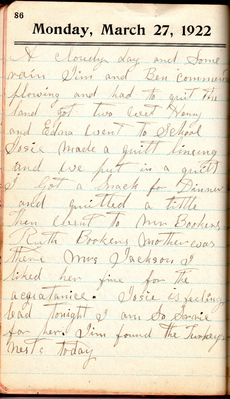 86
Monday, March 27, 1922
A cloudy day and Some
rain Jim and Ben commence
plowing and had to quit the
land got two wet Henry
and Edna went to School
Josie made a quilt lineing
and we put in a quilt
I Got a snack for Dinner
and quilted a little
then went to Mrs Bookers
Ruth Bookers Mother was
there Mrs Jackson I
liked her fine for the
acquatance. Josie is feeling
bad tonight I am So Sorrie
for her. Jim found the Turkey
nests today